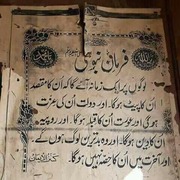 فرمانِ نبویؐ
لوگوں پر ایک زمانہ آئے گا کہ اُن کا مقصد
اُن کا پیٹ ہوگا۔ اور دولت اُن کی عزت
ہوگی اور عورت اُن کا قبلہ ہوگا۔ اور روپیہ
اُن کا دین ہوگا۔ اور وہ بدترین لوگ ہوں گے۔
اور آخرت میں اُن کا حصہ نہیں ہوگا۔